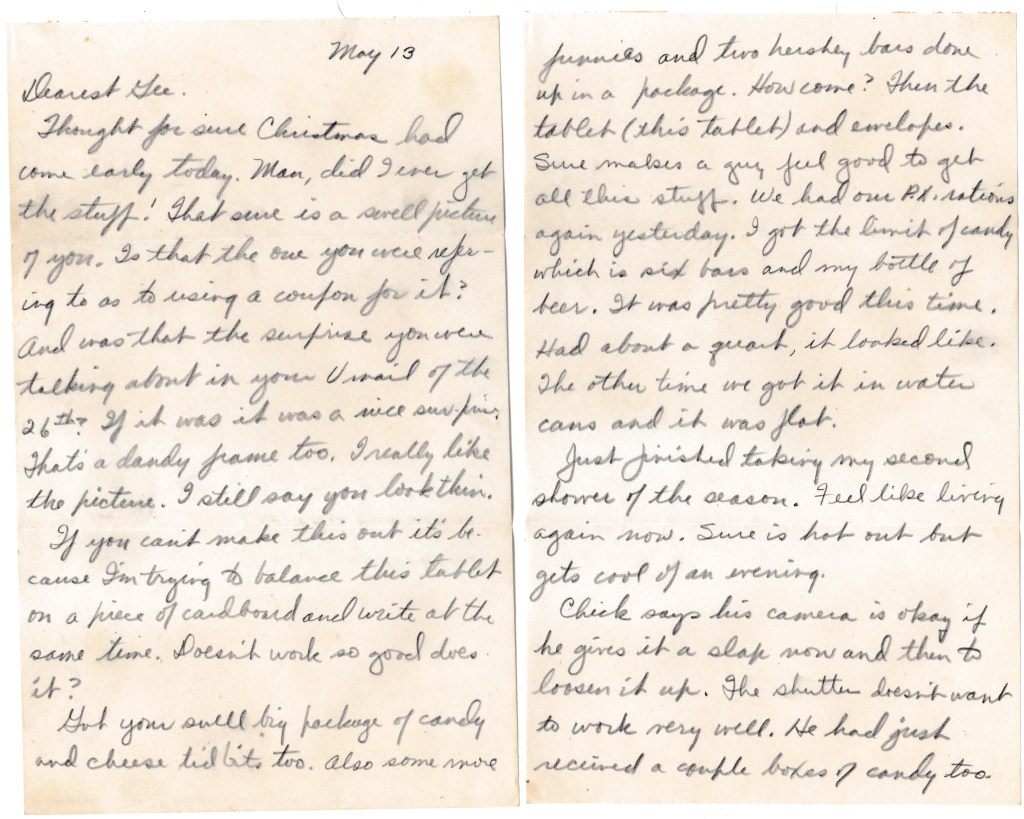 May 13
Dearest Gee.
Thought for sure Christmas had
come early today. Man, did I ever get
the stuff! That sure is a swell picture
of you. Is that the one you were refer-
ing to as to using a coupon for it?
And was that the surprise you were
talking about in your V mail of the
26th? If it was it was a nice surprise.
That's a dandy frame too. I really like
the picture. I still say you look thin.
If you can't make this out it's be-
cause I'm trying to balance this tablet
on a piece of cardboard and write at the
same time. Doesn't work so good does
it?
Got your swell big package of candy
and cheese tid bits too. Also some more
funnies and two hershey bars done
up in a package. How come? Then the
tablet (this tablet) and envelopes.
Sure makes a guy feel good to get
all this stuff. We had our P.X. rations
again yesterday. I got the limit of candy
which is six bars and my bottle of
beer. It was pretty good this time.
Had about a quart, it looked like.
The other time we got it in water
cans and it was flat.
Just finished taking my second
shower of the season. Feel like living
again now. Sure is hot out but
gets cool of an evening.
Chick says his camera is okay if
he gives it a slap now and then to
loosen it up. The shutter doesn't want
to work very well. He had just
received a couple boxes of candy too.